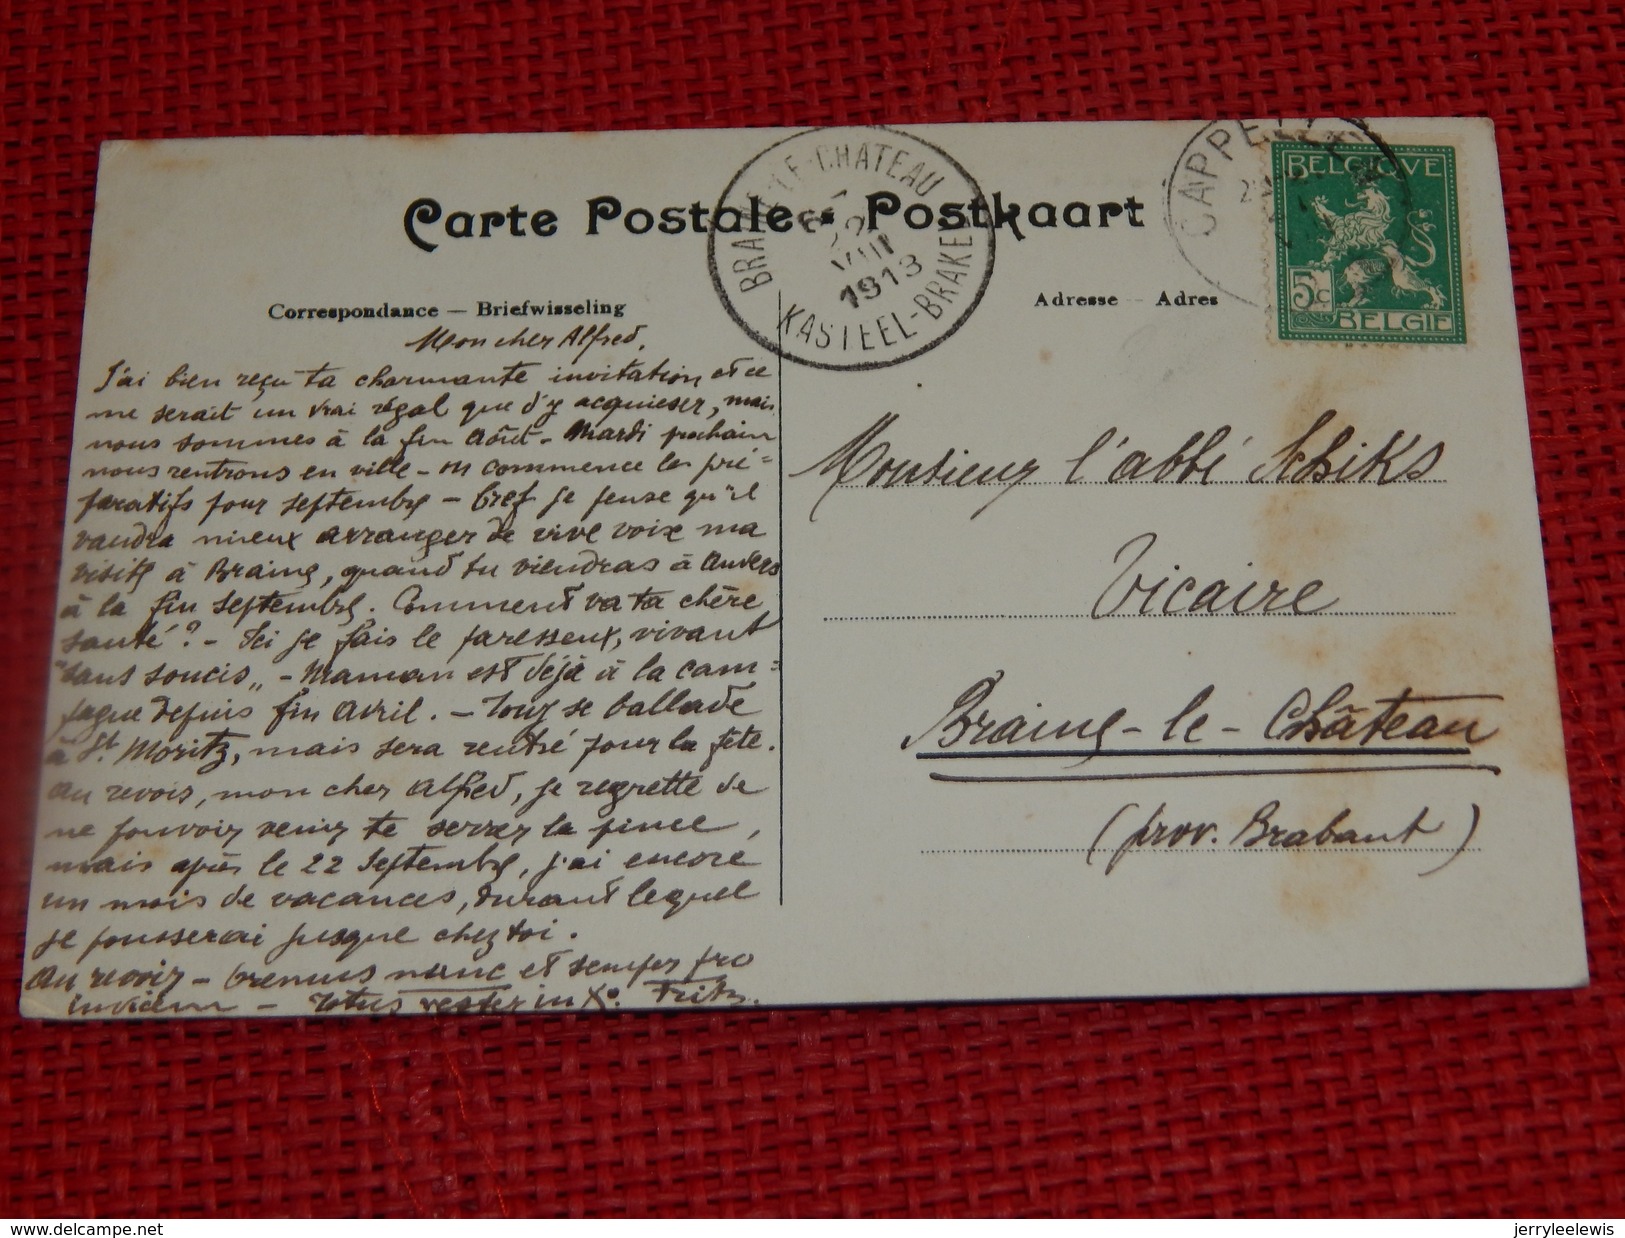 Carte Postale - Postkaart
BRAINE-LE-CHATEAU
22
VIII
1913
KASTEEL-BRAKEL
CAPPELL
BELGIQUE
5c
BELGIE
Correspondance — Briefwisseling
Adresse — Adres
Mon cher Alfred,
J'ai bien reçu ta charmante invitation et ce
me serait un vrai régal que d'y acquiescer, mais
nous sommes à la fin Août - Mardi prochain
nous rentrons en ville - on commence les pré=
paratifs pour septembre - Bref je pense qu'il
vaudra mieux arranger de vive voix ma
visite à Braine, quand tu viendras à Anvers
à la fin septembre. Comment va ta chère
santé? - Ici je fais le paresseux, vivant
"sans soucis" - Maman est déjà à la cam=
pagne depuis fin Avril. - Tony se ballade
à St. Moritz, mais sera rentré pour la fête.
Au revoir, mon cher Alfred, je regrette de
ne pouvoir venir te serrer la pince,
mais après le 22 Septembre, j'ai encore
un mois de vacances, durant lequel
je pousserai jusque chez toi.
Au revoir - Oremus nunc et semper pro
invicem - Totus vester in Xo. Fritz.
Monsieur l'abbé Schiks
Vicaire
Braine-le-Château
(prov. Brabant)
www.delcampe.net
jerryleelewis